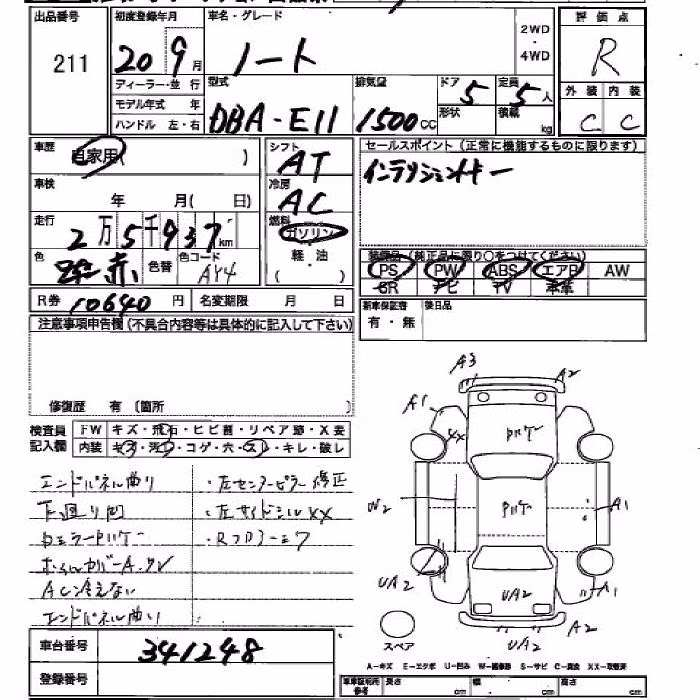 出品番号 初度登録年月 車名・グレード 評価点
211 20 9月 ノート 2WD・4WD R
ディーラー・並行 型式 排気量 ドア 5 定員 5人 外装 内装
モデル年式 年 DBA-E11 1500cc 形状 積載 kg C C
ハンドル 左・右
車歴 自家用( ) シフト AT セールスポイント(正常に機能するものに限ります)
車検 年 月( 日) 冷房 AC インテリジェントキー
走行 2万5千937km 燃料 ガソリン
軽・油
( )
色 赤 色替 色コード AY4
装備品(純正品に限り○をつけてください)
PS PW ABS エアB AW
SR ナビ TV 本革
R券 10640円 名変期限 月 日
新車保証書 有・無 後日品
注意事項申告欄(不具合内容等は具体的に記入して下さい)
修復歴 有 (箇所 )
検査員記入欄 FW キズ・飛石・ヒビ割・リペア跡・X要
内装 キズ・汚レ・コゲ・穴・スレ・キレ・破レ
エンドパネル曲り ・左センターピラー修正
下廻り凹 ・左サイドシルXX
ホイルカバーA.ワレ
AC冷えない
エンドパネル曲り
A3 A2
A1 XX
W2 A1
UA2 UA2 A1
UA2 A2
スペア
車台番号 341248
登録番号
A-キズ E-エクボ U-凹み W-補修跡 S-サビ C-腐食 XX-取替済
車庫証明用参考 長さ cm 幅 cm 高さ cm